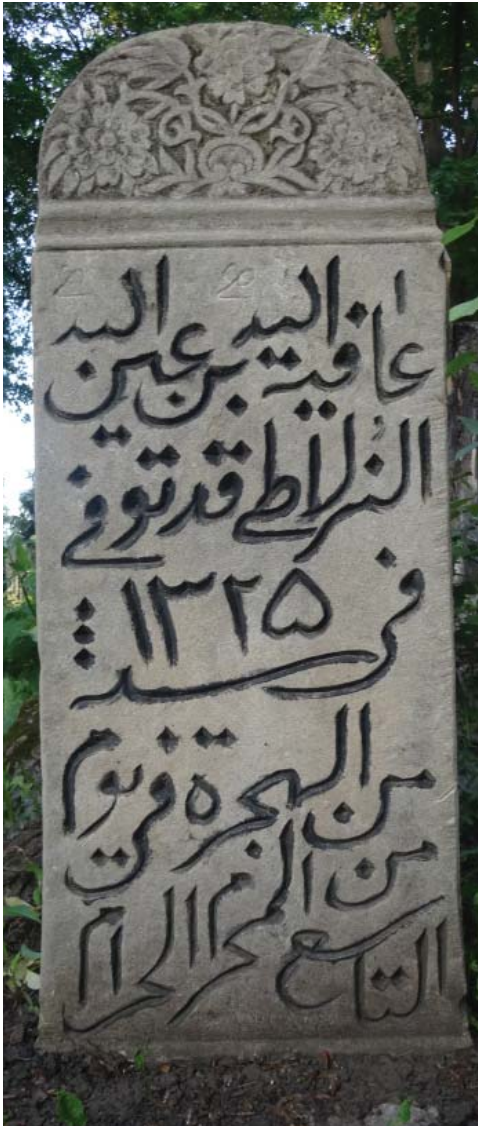 عافية اليد بن عين اليد
النرلاطي قد توفي
في سنة ١٣٢٥
من الهجرة في يوم
التاسع من المحرم الحرام